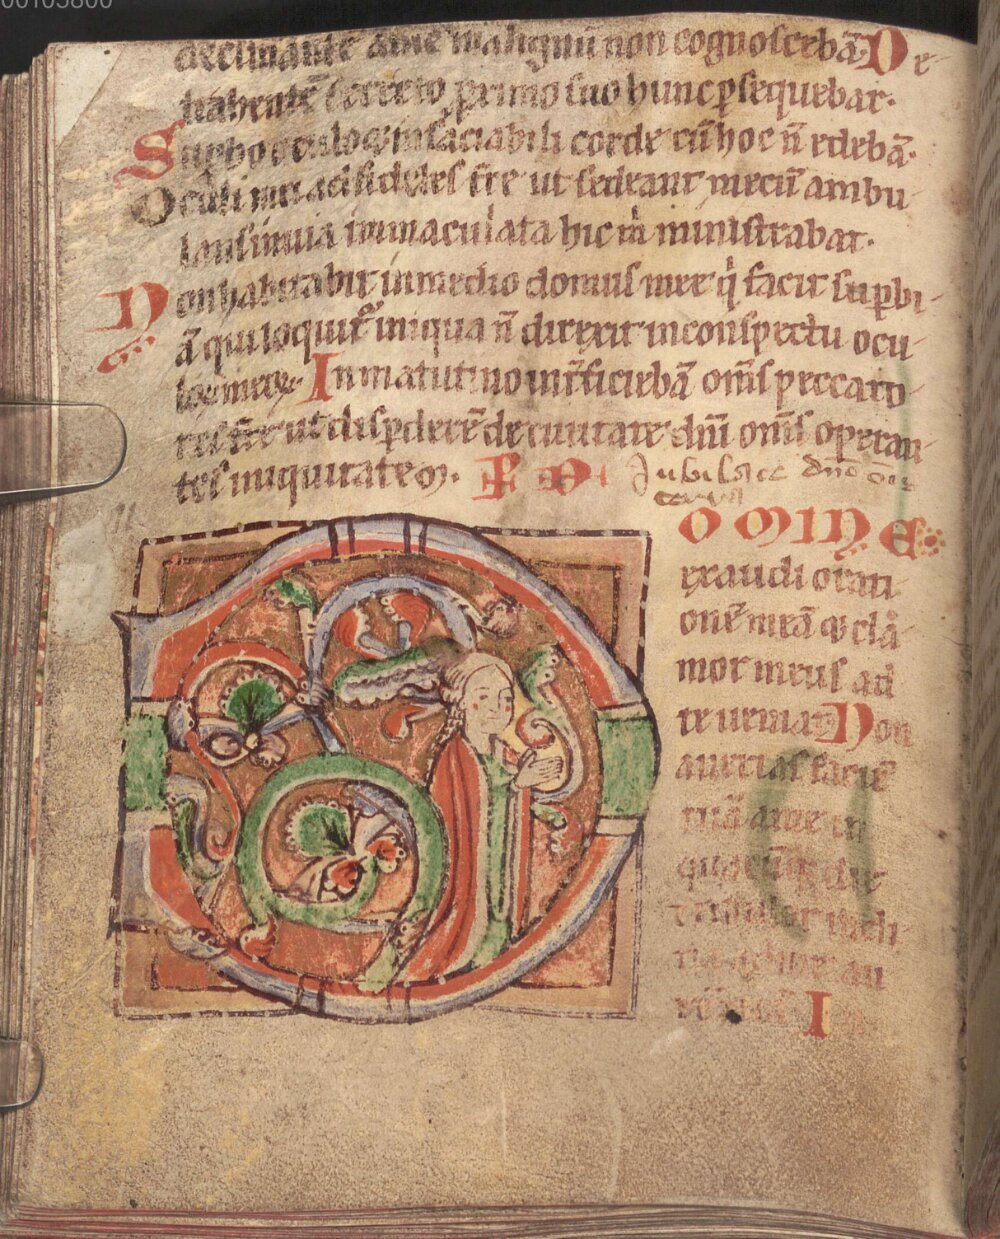 00105800
declinante a me malignū non cognoscebā. De
trahentē secreto ꝓximo suo hunc ꝑsequebar.
Supbo oculo ⁊ insaciabili corde cū hoc n̄ edebā.
Oculi mei ad fideles tre ut sedeant mecū ambu
lans in uia immaculata hic m̄ ministrabat.
Non habitabit in medio domus mee q̄ facit supbi
ā qui loquit iniqua n̄ direxit in conspectu ocu
loꝝ meoꝝ. In matutino int̄ficiebā om̄s peccato
res tre ut disꝑderē de ciuitate dn̄i om̄s operan
tes iniquitatem.
Iubilate dn̄o
DOMINE
exaudi orati
onē meā ⁊ clā
mor meus ad
te ueniat. Non
auertas faciē
tuā a me in
quacūq; die
tribulor incli
na
I